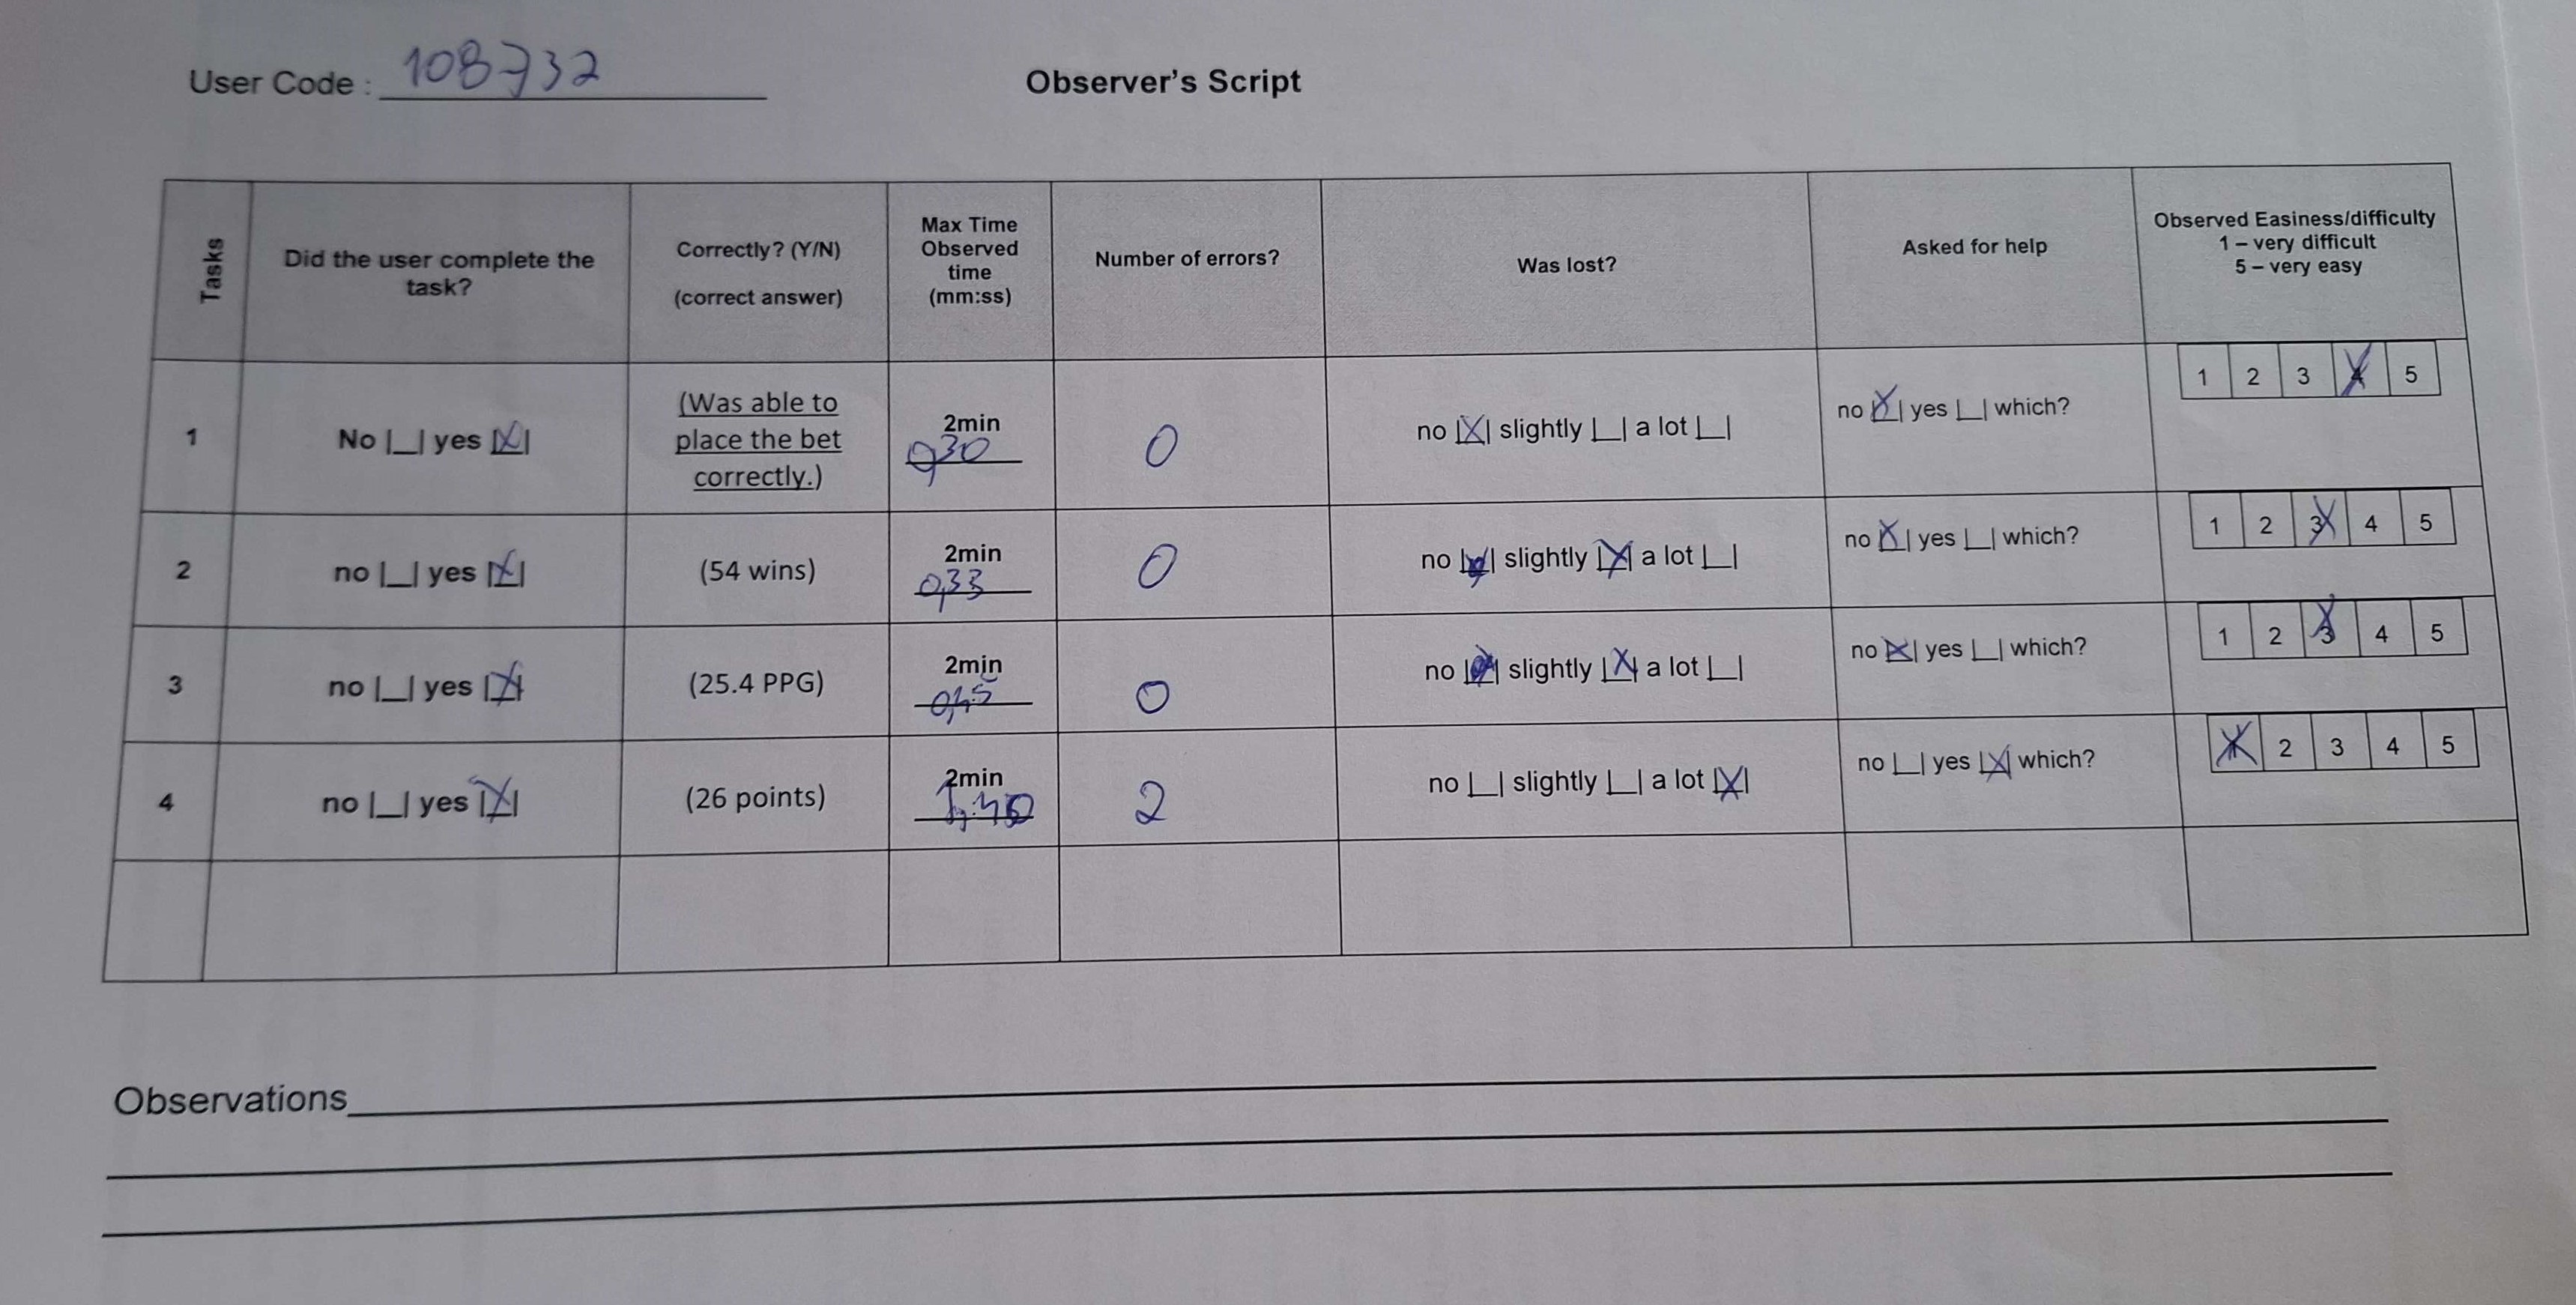 User Code : 108732
Observer's Script
Tasks
Did the user complete the
task?
Correctly? (Y/N)
(correct answer)
Max Time
Observed
time
(mm:ss)
Number of errors?
Was lost?
Asked for help
Observed Easiness/difficulty
1 – very difficult
5 – very easy
1
No |_| yes |X|
(Was able to
place the bet
correctly.)
2min
0,30
0
no |X| slightly |_| a lot |_|
no |X| yes |_| which?
1 2 3 4 5
2
no |_| yes |X|
(54 wins)
2min
0,33
0
no |_| slightly |X| a lot |_|
no |X| yes |_| which?
1 2 3 4 5
3
no |_| yes |X|
(25.4 PPG)
2min
0
no |_| slightly |X| a lot |_|
no |X| yes |_| which?
1 2 3 4 5
4
no |_| yes |X|
(26 points)
2min
2
no |_| slightly |_| a lot |X|
no |_| yes |X| which?
1 2 3 4 5
Observations